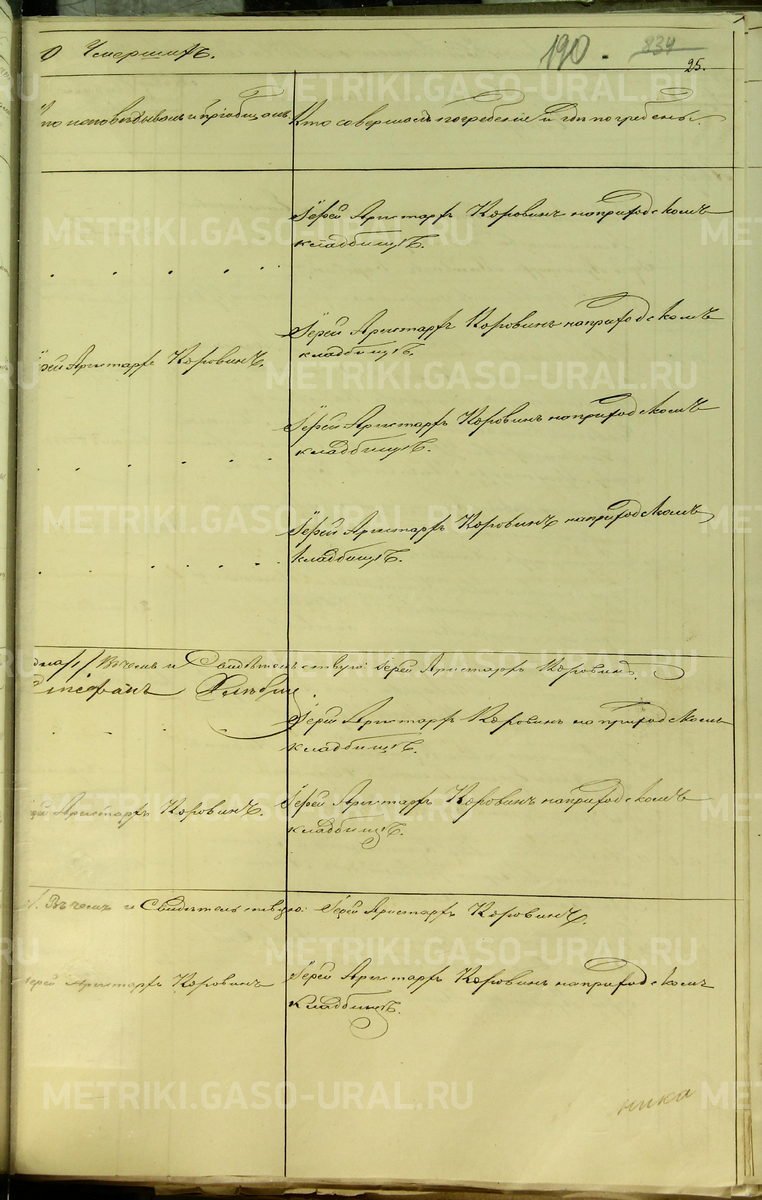 О Умершихъ.
190.
834
25.
Кто исповѣдывалъ и пріобщалъ.
Кто совершалъ погребеніе и гдѣ погребены.
Іерей Аристархъ Коровинъ на приходскомъ
кладбищѣ.
Іерей Аристархъ Коровинъ.
Іерей Аристархъ Коровинъ на приходскомъ
кладбищѣ.
Іерей Аристархъ Коровинъ на приходскомъ
кладбищѣ.
Іерей Аристархъ Коровинъ на приходскомъ
кладбищѣ.
одна /1/ Въ чемъ и Свидѣтельствую: Іерей Аристархъ Коровинъ.
Іерей Аристархъ Коровинъ на приходскомъ
кладбищѣ.
Іерей Аристархъ Коровинъ.
Іерей Аристархъ Коровинъ на приходскомъ
кладбищѣ.
Въ чемъ и Свидѣтельствую: Іерей Аристархъ Коровинъ.
Іерей Аристархъ Коровинъ
Іерей Аристархъ Коровинъ на приходскомъ
кладбищѣ.
ника
METRIKI.GASO-URAL.RU